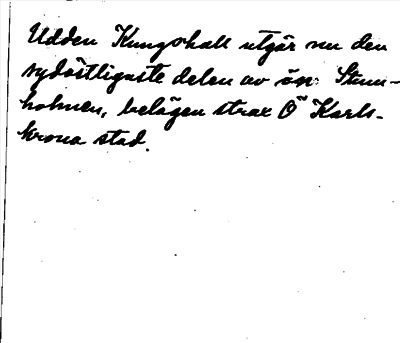 Udden Kungshall utgör nu den
sydöstligaste delen av ön: Stum-
holmen, belägen strax Ö Karls-
krona stad.